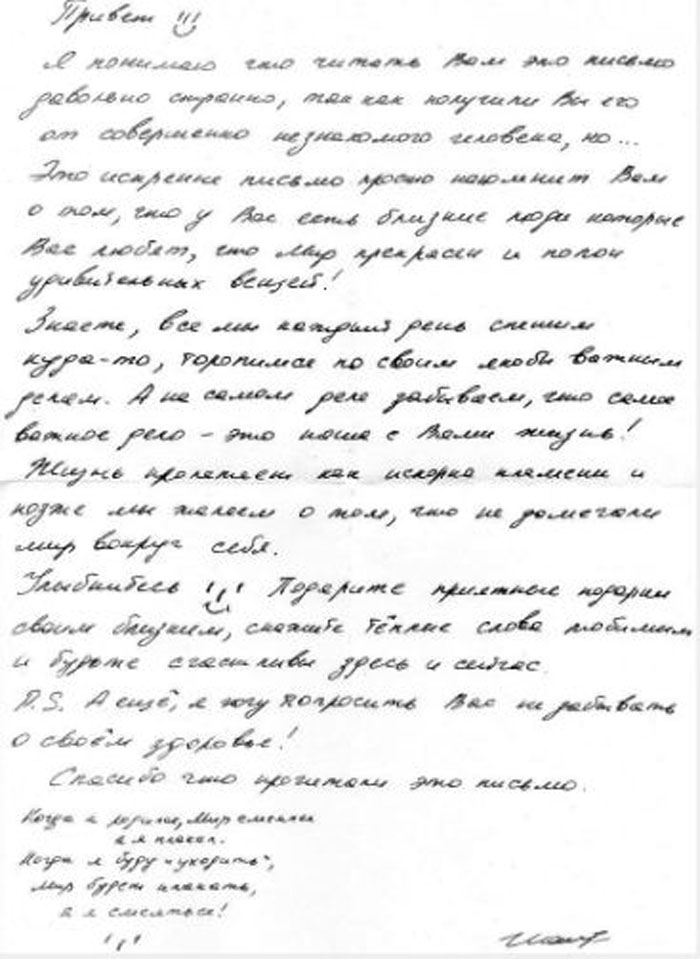 Привет !!!
Я понимаю что читать Вам это письмо
давольно странно, так как получили Вы его
от совершенно незнакомого человека, но...
Это искренне письмо просто напомнит Вам
о том, что у Вас есть близкие люди которые
Вас любят, что Мир прекрасен и полон
удивительных вещей!
Знаете, все мы каждый день спешим
куда-то, торопимся по своим якобы важным
делам. А на самом деле забываем, что самое
важное дело - это наша с Вами жизнь!
Жизнь пролетает как искорка пламени и
позже мы жалеем о том, что не замечали
мир вокруг себя.
Улыбнитесь !,! Подарите приятные подарки
своим близким, скажите тёплые слова любимым
и будьте счастливы здесь и сейчас.
P.S. А ещё, я хочу попросить Вас не забывать
о своём здоровье!
Спасибо что прочитали это письмо.
Когда я родился, Мир смеялся
а я плакал.
Когда я буду "уходить",
мир будет плакать,
а я смеяться!
!,!